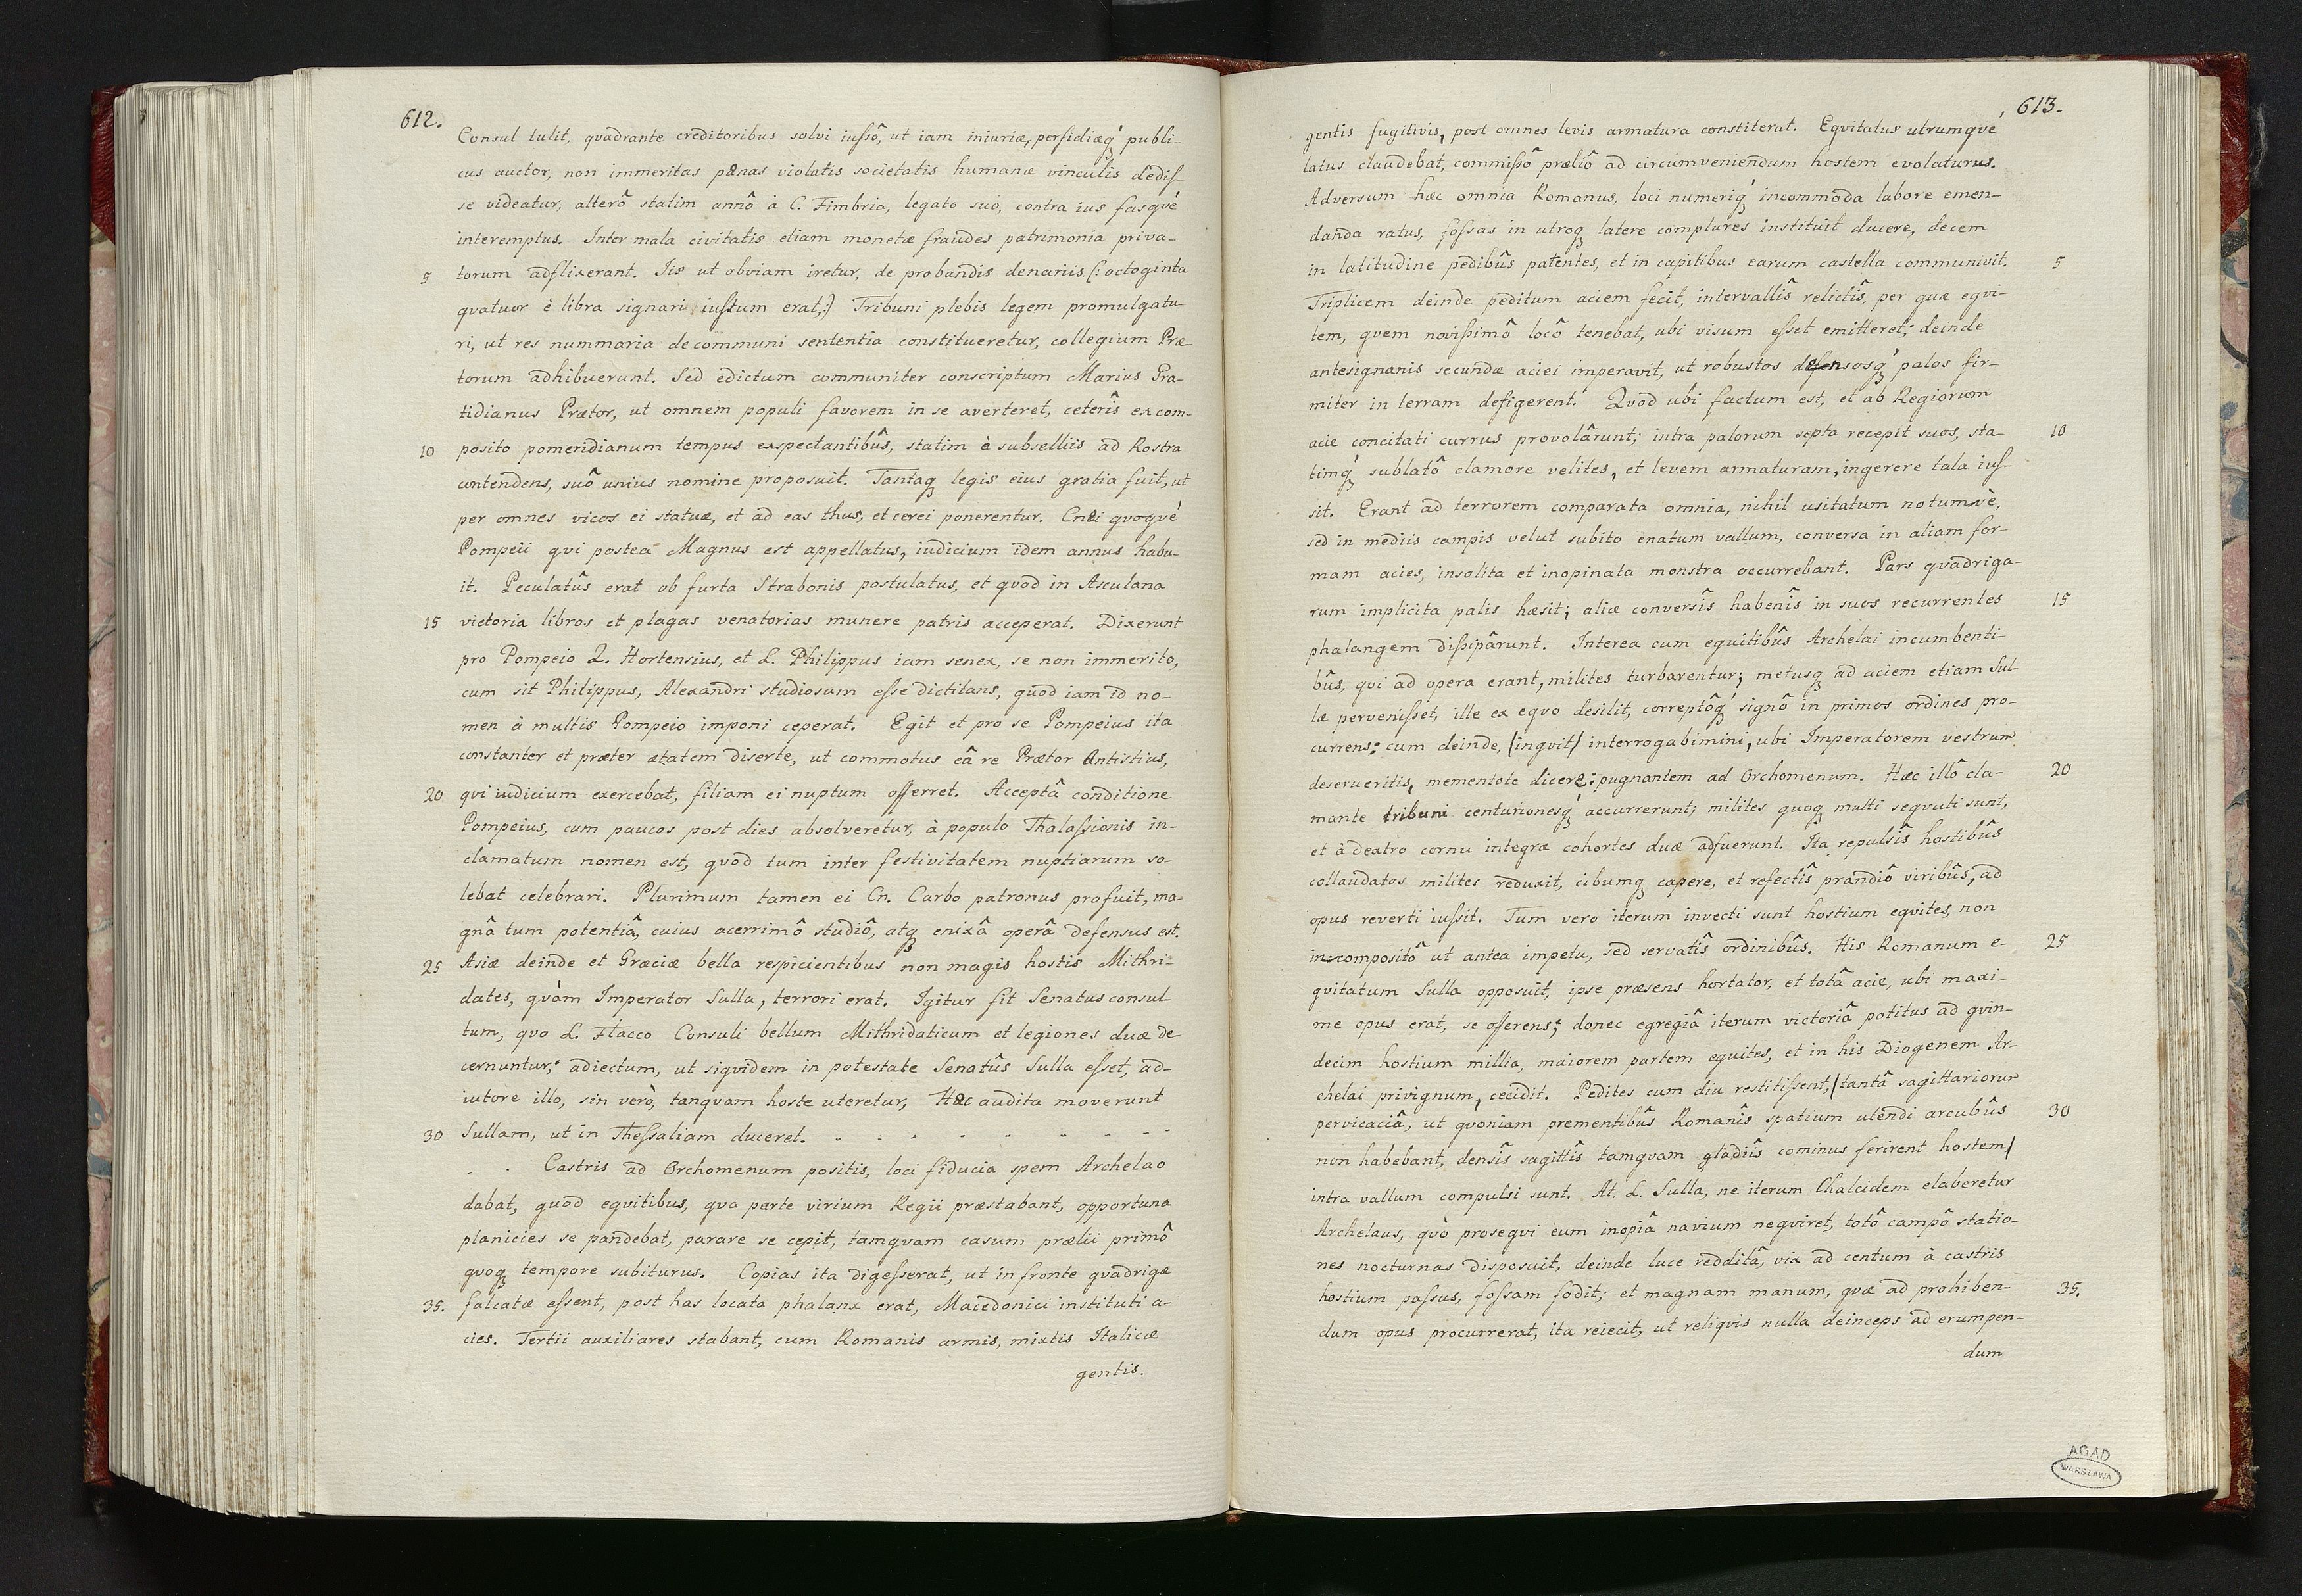 612.
Consul tulit, qvadrante creditoribus solvi iussô, ut iam iniuriæ, perfidiæq́ publi-
cus auctor, non immeritas pænas violatis societatis humanæ vinculis dedis-
se videatur, alterô statim annô à C. Fimbria, legato suo, contra ius fasqvé
interemptus. Inter mala civitatis etiam monetæ fraudes patrimonia priva-
5 torum adflixerant. Iis ut obviam iretur, de probandis denariis (: octoginta
qvatuor è libra signari iustum erat;) Tribuni plebis legem promulgatu-
ri, ut res nummaria de communi sententia constitueretur, collegium Præ-
torum adhibuerunt. Sed edictum communiter conscriptum Marius Gra-
tidianus Prætor, ut omnem populi favorem in se averteret, ceterîs ex com-
10 posito pomeridianum tempus expectantibûs, statim è subselliis ad Rostra
contendens, suô unius nomine proposuit. Tantaq legis eius gratia fuit, ut
per omnes vicos ei statuæ, et ad eas thus, et cerei ponerentur. Cnæi qvoqvé
Pompeii qvi postea Magnus est appellatus, iudicium idem annus habu-
it. Peculatûs erat ob furta Strabonis postulatus, et qvod in Asculana
15 victoria libros et plagas venatorias munere patris acceperat. Dixerunt
pro Pompeio Q. Hortensius, et L. Philippus iam senex, se non immerito,
cum sit Philippus, Alexandri studiosum esse dictitans, qvod iam id no-
men à multis Pompeio imponi ceperat. Egit et pro se Pompeius ita
constanter et præter ætatem diserte, ut commotus eâ re Prætor Antistius,
20 qvi iudicium exercebat, filiam ei nuptum offerret. Acceptâ conditione
Pompeius, cum paucos post dies absolveretur, à populo Thalassionis in-
clamatum nomen est, qvod tum inter festivitatem nuptiarum so-
lebat celebrari. Plurimum tamen ei Cn. Carbo patronus profuit, ma-
gnâ tum potentiâ, cuius acerrimô studiô, atq enixâ operâ defensus est.
25 Asiæ deinde et Græciæ bella respicientibus non magis hostis Mithri-
dates, qvàm Imperator Sulla, terrori erat. Igitur fit Senatus consul-
tum, qvo L. Flacco Consuli bellum Mithridaticum et legiones duæ de
cernuntur; adiectum, ut siqvidem in potestate Senatûs Sulla esset, ad-
iutore illo, sin verò, tanqvam hoste uteretur, Hæc audita moverunt
30 Sullam, ut in Thessaliam duceret. - - - - - - - - -
. . Castris ad Orchomenum positis, loci fiducia spem Archelao
dabat, qvod eqvitibus, qva parte virium Regii præstabant, opportuna
planicies se pandebat, parare se cepit, tamqvam casum prælii primô
qvoq tempore subiturus. Copias ita digesserat, ut in fronte qvadrigæ
35. falcatæ essent, post has locata phalanx erat, Macedonici instituti a-
cies. Tertii auxiliares stabant, cum Romanis armis, mixtis Italicæ
gentis.
613.
gentis fugitivis, post omnes levis armatura constiterat. Eqvitatus utrumqvé
latus claudebat, commissô præliô ad circumveniendum hostem evolaturus.
Adversum hæc omnia Romanus, loci numeriq́ incommoda labore emen-
danda ratus, fossas in utroq latere complures instituit ducere, decem
in latitudine pedibûs patentes, et in capitibus earum castella communivit. 5
Triplicem deinde peditum aciem fecit, intervallîs relictîs, per quæ eqvi-
tem, qvem novissimô locô tenebat, ubi visum esset emitteret; deinde
antesignanis secundæ aciei imperavit, ut robustos densosq́ palos fir-
miter in terram defigerent. Qvod ubi factum est, et ab Regiorum
acie concitati currus provolârunt; intra palorum septa recepit suos, sta- 10
timq́ sublatô clamore velites, et levem armaturam, ingerere tala ius-
sit. Erant ad terrorem comparata omnia, nihil usitatum notumvè,
sed in mediis campis velut subito enatum vallum, conversa in aliam for-
mam acies, insolita et inopinata monstra occurrebant. Pars qvadriga-
rum implicita palis hæsit; aliæ conversîs habenîs in suos recurrentes 15
phalangem dissipârunt. Interea cum equitibûs Archelai incumbenti-
bûs, qvi ad opera erant, milites turbarentur; metusq ad aciem etiam Sul-
læ pervenisset, ille ex eqvo desilit, correptôq́ signô in primos ordines pro-
currens: cum deinde, /inqvit/ interrogabimini, ubi Imperatorem vestrum
deserueritis, mementote dicere: pugnantem ad Orchomenum. Hæc illô cla- 20
mante tribuni centurionesq́ accurrerunt; milites quoq multi seqvuti sunt,
et à dextro cornu integræ cohortes duæ adfuerunt. Ita repulsîs hostibûs
collaudatos milites reduxit, cibumq capere, et refectîs prandiô viribûs, ad
opus reverti iussit. Tum vero iterum invecti sunt hostium eqvites, non
incompositô ut antea impetu, sed servatîs ordinibûs. His Romanum e- 25
qvitatum Sulla opposuit, ipse præsens hortator, et totâ acie, ubi maxi-
me opus erat, se offerens; donec egregiâ iterum victoriâ potitus ad qvin-
decim hostium millia, maiorem partem equites, et in his Diogenem Ar-
chelai privignum, cecidit. Pedites cum diu restitissent, /tantâ sagittariorum
pervicaciâ, ut qvoniam prementibûs Romanîs spatium utendi arcubûs 30
non habebant, densîs sagittîs tamquam gladiîs cominus ferirent hostem/
intra vallum compulsi sunt. At. L. Sulla, ne iterum Chalcidem elaberetur
Archelaus, qvò proseqvi eum inopiâ navium neqviret, totô campô statio-
nes nocturnas disposuit, deinde luce redditâ, vix ad centum à castris
hostium passus, fossam fodit; et magnam manum, qvæ ad prohiben- 35.
dum opus procurrerat, ita reiecit, ut reliqvis nulla deinceps ad erumpen-
dum
AGAD
WARSZAWA